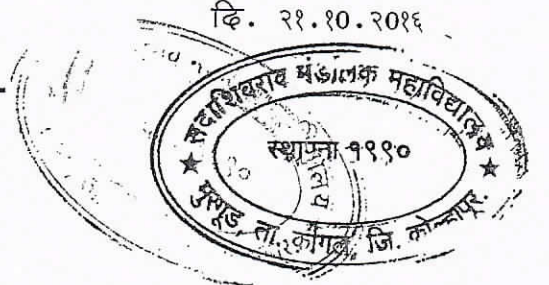 दि. २१.१०.२०१६
सदाशिवराव मंडलिक महाविद्यालय
स्थापना १९९०
मुरगूड, ता. कागल, जि. कोल्हापूर.